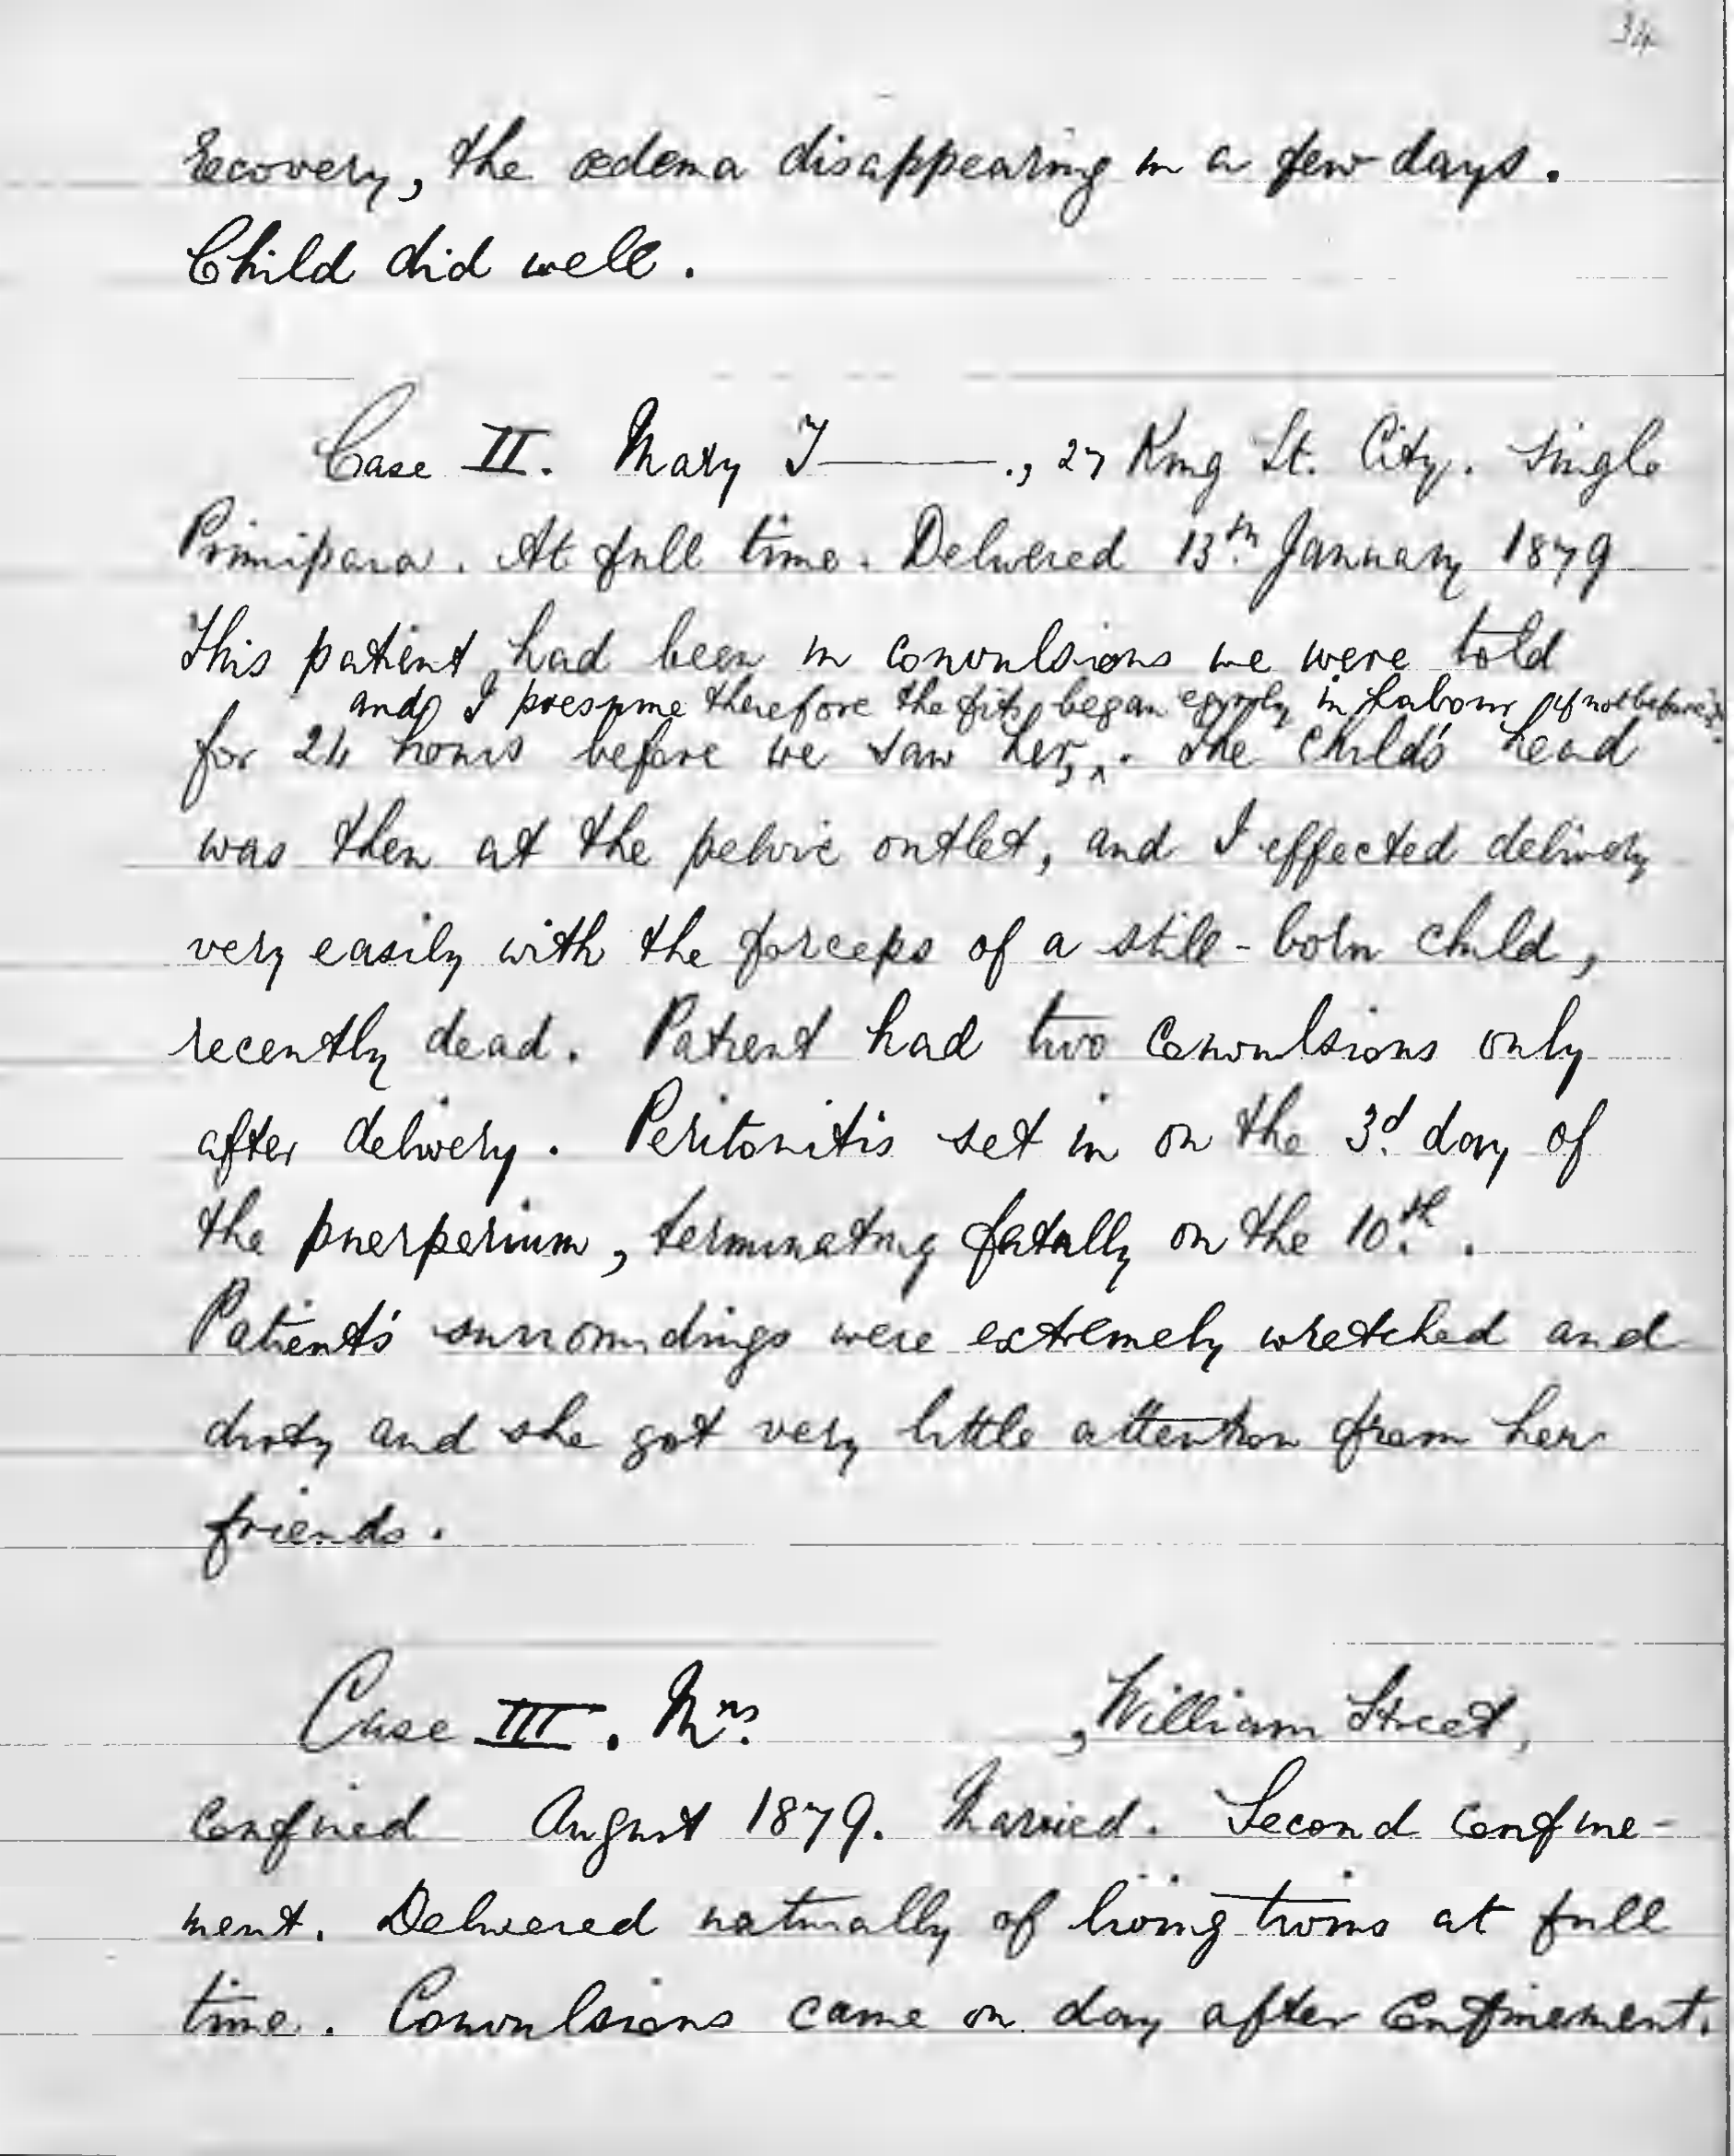 34
recovery, the œdema disappearing in a few days.
Child did well.
Case II. Mary T———., 27 King St. City. Single
Primipara. At full time. Delivered 13th. January 1879
This patient had been in convulsions we were told
and I presume therefore the fits began early in labour if not before it
for 24 hours before we saw her, ^. The child's head
was then at the pelvic outlet, and I effected delivery
very easily with the forceps of a still-born child,
recently dead. Patient had two convulsions only
after delivery. Peritonitis set in on the 3d. day of
the puerperium, terminating fatally on the 10th..
Patient's surroundings were extremely wretched and
dirty and she got very little attention from her
friends.
Case III. Mrs. , William Street,
Confined August 1879. Married. Second confine-
ment. Delivered naturally of living twins at full
time. Convulsions came on day after confinement.